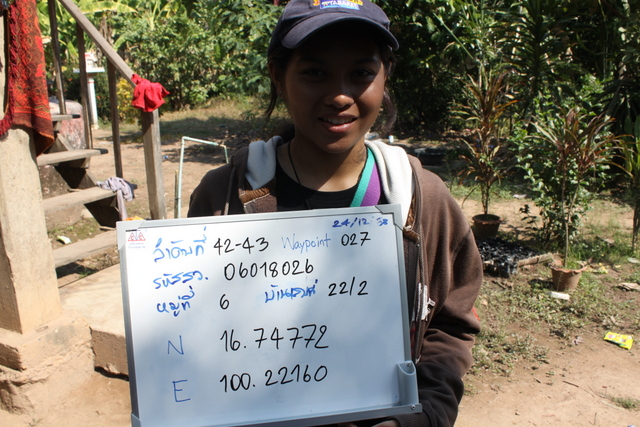 24/12/58
ลำดับที่ 42-43 Waypoint 027
รหัสรว. 06018026
หมู่ที่ 6 บ้านเลขที่ 22/2
N 16.74772
E 100.22160